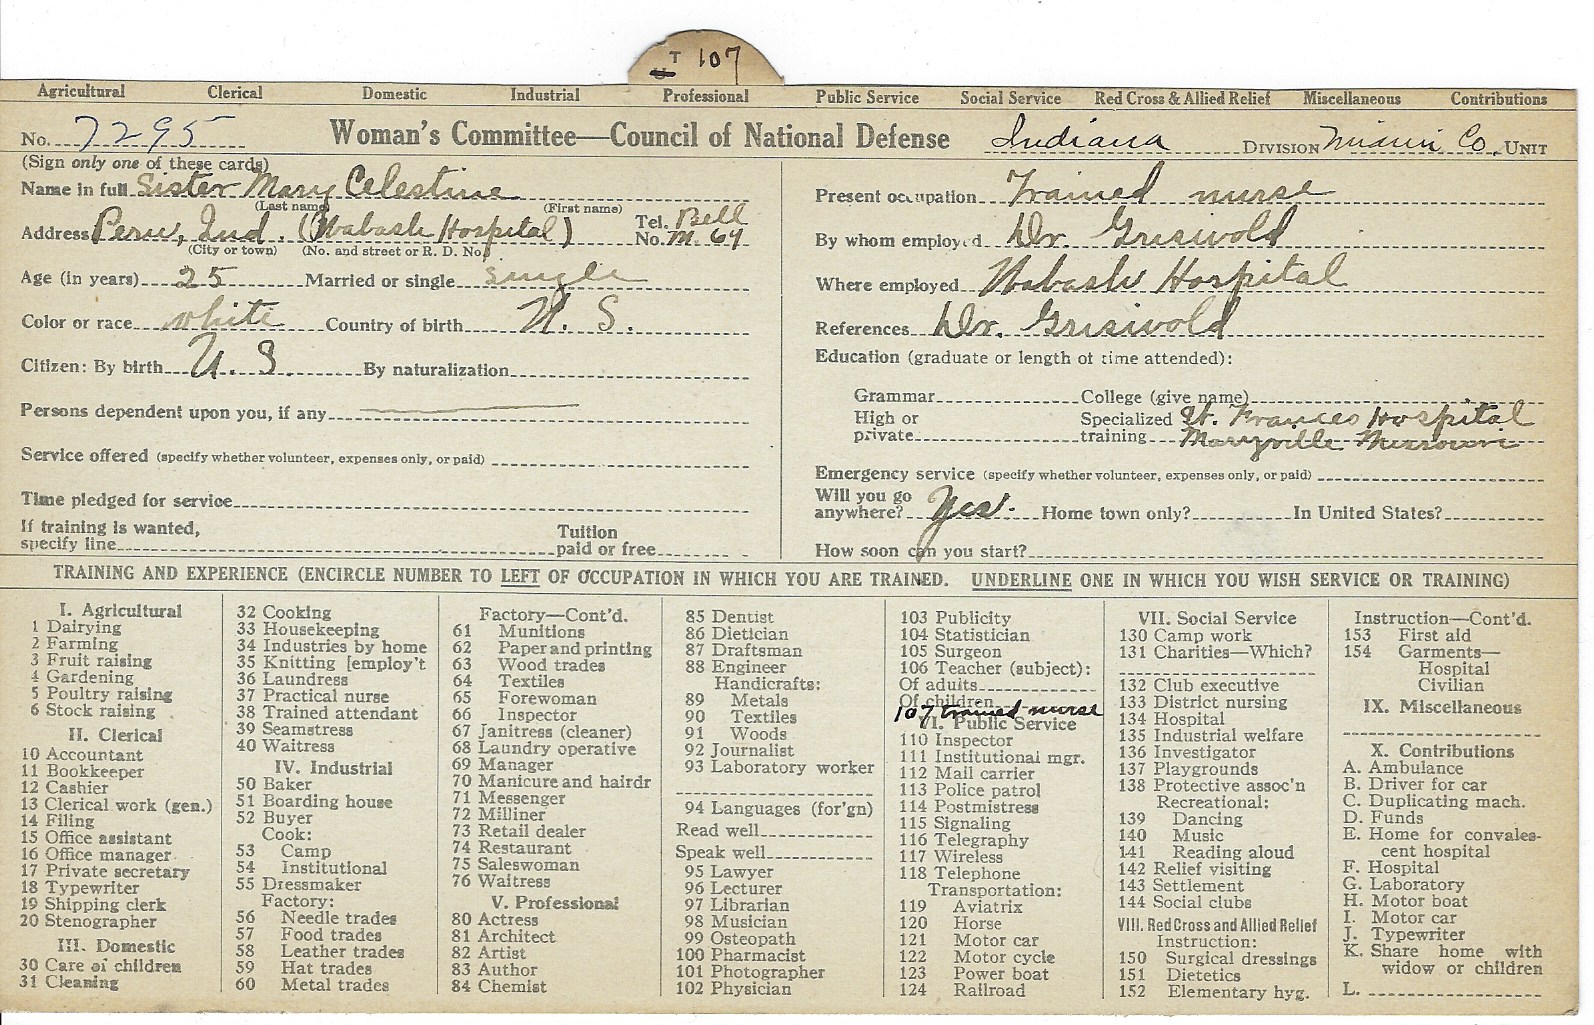 T 107
Agricultural Clerical Domestic Industrial Professional Public Service Social Service Red Cross & Allied Relief Miscellaneous Contributions
No. 7295 Woman's Committee—Council of National Defense Indiana DIVISION Miami Co. UNIT
(Sign only one of these cards)
Name in full Sister Mary Celestine
(Last name) (First name)
Address Peru, Ind. (Wabash Hospital) Tel. No. Bell M. 64
(City or town) (No. and street or R. D. No.)
Age (in years) 25 Married or single single
Color or race white Country of birth U. S.
Citizen: By birth U. S. By naturalization
Persons dependent upon you, if any
Service offered (specify whether volunteer, expenses only, or paid)
Time pledged for service
If training is wanted, Tuition
specify line paid or free
Present occupation Trained nurse
By whom employed Dr. Griswold
Where employed Wabash Hospital
References Dr. Griswold
Education (graduate or length of time attended):
Grammar College (give name)
High or Specialized St. Frances Hospital
private training Maryville Missouri
Emergency service (specify whether volunteer, expenses only, or paid)
Will you go
anywhere? Yes. Home town only? In United States?
How soon can you start?
TRAINING AND EXPERIENCE (ENCIRCLE NUMBER TO LEFT OF OCCUPATION IN WHICH YOU ARE TRAINED. UNDERLINE ONE IN WHICH YOU WISH SERVICE OR TRAINING)
I. Agricultural
1 Dairying
2 Farming
3 Fruit raising
4 Gardening
5 Poultry raising
6 Stock raising
II. Clerical
10 Accountant
11 Bookkeeper
12 Cashier
13 Clerical work (gen.)
14 Filing
15 Office assistant
16 Office manager
17 Private secretary
18 Typewriter
19 Shipping clerk
20 Stenographer
III. Domestic
30 Care of children
31 Cleaning
32 Cooking
33 Housekeeping
34 Industries by home
35 Knitting [employ't
36 Laundress
37 Practical nurse
38 Trained attendant
39 Seamstress
40 Waitress
IV. Industrial
50 Baker
51 Boarding house
52 Buyer
Cook:
53 Camp
54 Institutional
55 Dressmaker
Factory:
56 Needle trades
57 Food trades
58 Leather trades
59 Hat trades
60 Metal trades
Factory—Cont'd.
61 Munitions
62 Paper and printing
63 Wood trades
64 Textiles
65 Forewoman
66 Inspector
67 Janitress (cleaner)
68 Laundry operative
69 Manager
70 Manicure and hairdr
71 Messenger
72 Milliner
73 Retail dealer
74 Restaurant
75 Saleswoman
76 Waitress
V. Professional
80 Actress
81 Architect
82 Artist
83 Author
84 Chemist
85 Dentist
86 Dietician
87 Draftsman
88 Engineer
Handicrafts:
89 Metals
90 Textiles
91 Woods
92 Journalist
93 Laboratory worker
94 Languages (for'gn)
Read well
Speak well
95 Lawyer
96 Lecturer
97 Librarian
98 Musician
99 Osteopath
100 Pharmacist
101 Photographer
102 Physician
103 Publicity
104 Statistician
105 Surgeon
106 Teacher (subject):
Of adults
Of children
107 trained nurse
VI. Public Service
110 Inspector
111 Institutional mgr.
112 Mail carrier
113 Police patrol
114 Postmistress
115 Signaling
116 Telegraphy
117 Wireless
118 Telephone
Transportation:
119 Aviatrix
120 Horse
121 Motor car
122 Motor cycle
123 Power boat
124 Railroad
VII. Social Service
130 Camp work
131 Charities—Which?
132 Club executive
133 District nursing
134 Hospital
135 Industrial welfare
136 Investigator
137 Playgrounds
138 Protective assoc'n
Recreational:
139 Dancing
140 Music
141 Reading aloud
142 Relief visiting
143 Settlement
144 Social clubs
VIII. Red Cross and Allied Relief
Instruction:
150 Surgical dressings
151 Dietetics
152 Elementary hyg.
Instruction—Cont'd.
153 First aid
154 Garments—
Hospital
Civilian
IX. Miscellaneous
X. Contributions
A. Ambulance
B. Driver for car
C. Duplicating mach.
D. Funds
E. Home for convales-
cent hospital
F. Hospital
G. Laboratory
H. Motor boat
I. Motor car
J. Typewriter
K. Share home with
widow or children
L.